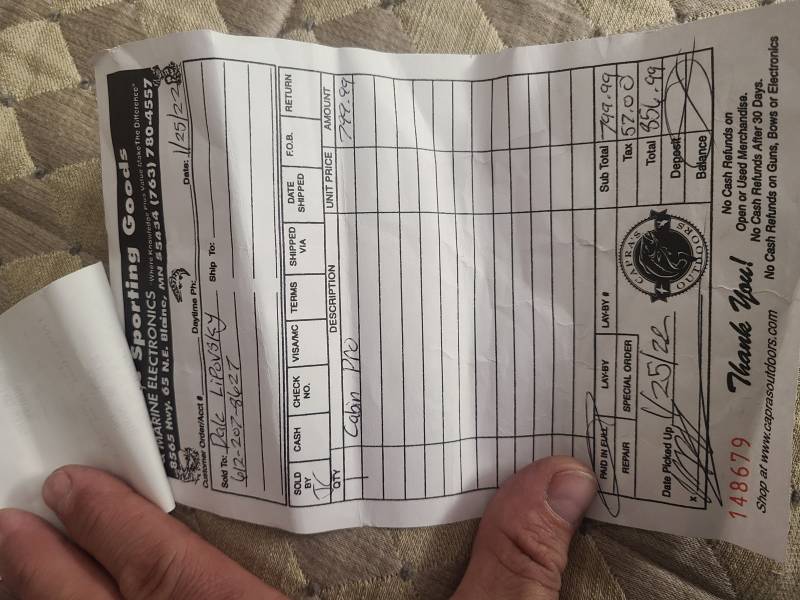 Sporting Goods
MARINE ELECTRONICS "Where Knowledge Plus Value Make The Difference"
8565 Hwy. 65 N.E. Blaine, MN 55434 (763) 780-4557
Customer Order/Acct # Daytime Ph: Date: 1/25/22
Sold To: Dale Lipovsky Ship To:
612-207-8627
SOLD BY CASH CHECK NO. VISA/MC TERMS SHIPPED VIA DATE SHIPPED F.O.B. RETURN
QTY DESCRIPTION UNIT PRICE AMOUNT
1 Cabin Pro 799.99
PAID IN FULL LAY-BY LAY-BY # Sub Total 799.99
REPAIR SPECIAL ORDER Tax 57.00
Total 856.99
Date Picked Up 1/25/22 Deposit
x Balance
CAPRA'S OUTDOORS
148679 Thank You!
Shop at www.caprasoutdoors.com
No Cash Refunds on
Open or Used Merchandise.
No Cash Refunds After 30 Days.
No Cash Refunds on Guns, Bows or Electronics